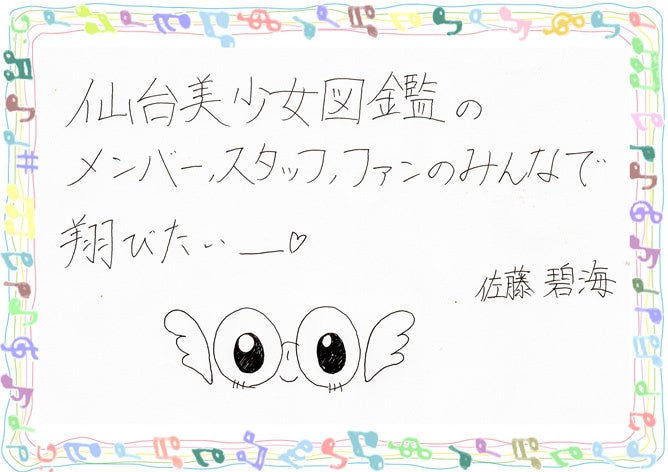 仙台美少女図鑑の
メンバー,スタッフ,ファンのみんなで
翔びたぃー♡
佐藤 碧海